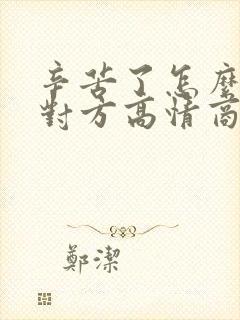 辛苦了怎麼
對方高情商
鄭潔